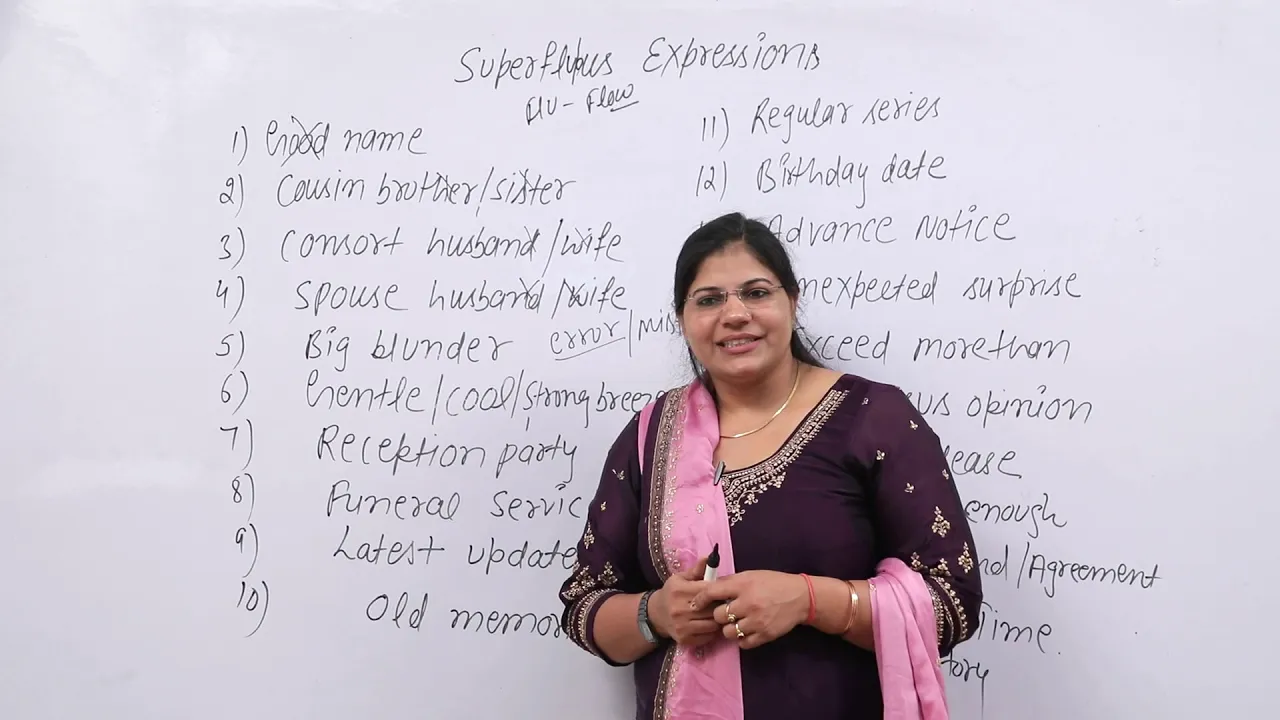 Superfluous Expressions
flu - Flow
1) Good name
2) Cousin brother/sister
3) Consort husband/wife
4) Spouse husband/wife
5) Big blunder error/mis
6) Gentle/cool/strong breeze
7) Reception party
8) Funeral servic
9) Latest update
10) Old memor
11) Regular series
12) Birthday date
Advance Notice
nexpected surprise
xceed more than
us opinion
lease
enough
nd/Agreement
Time.
tory